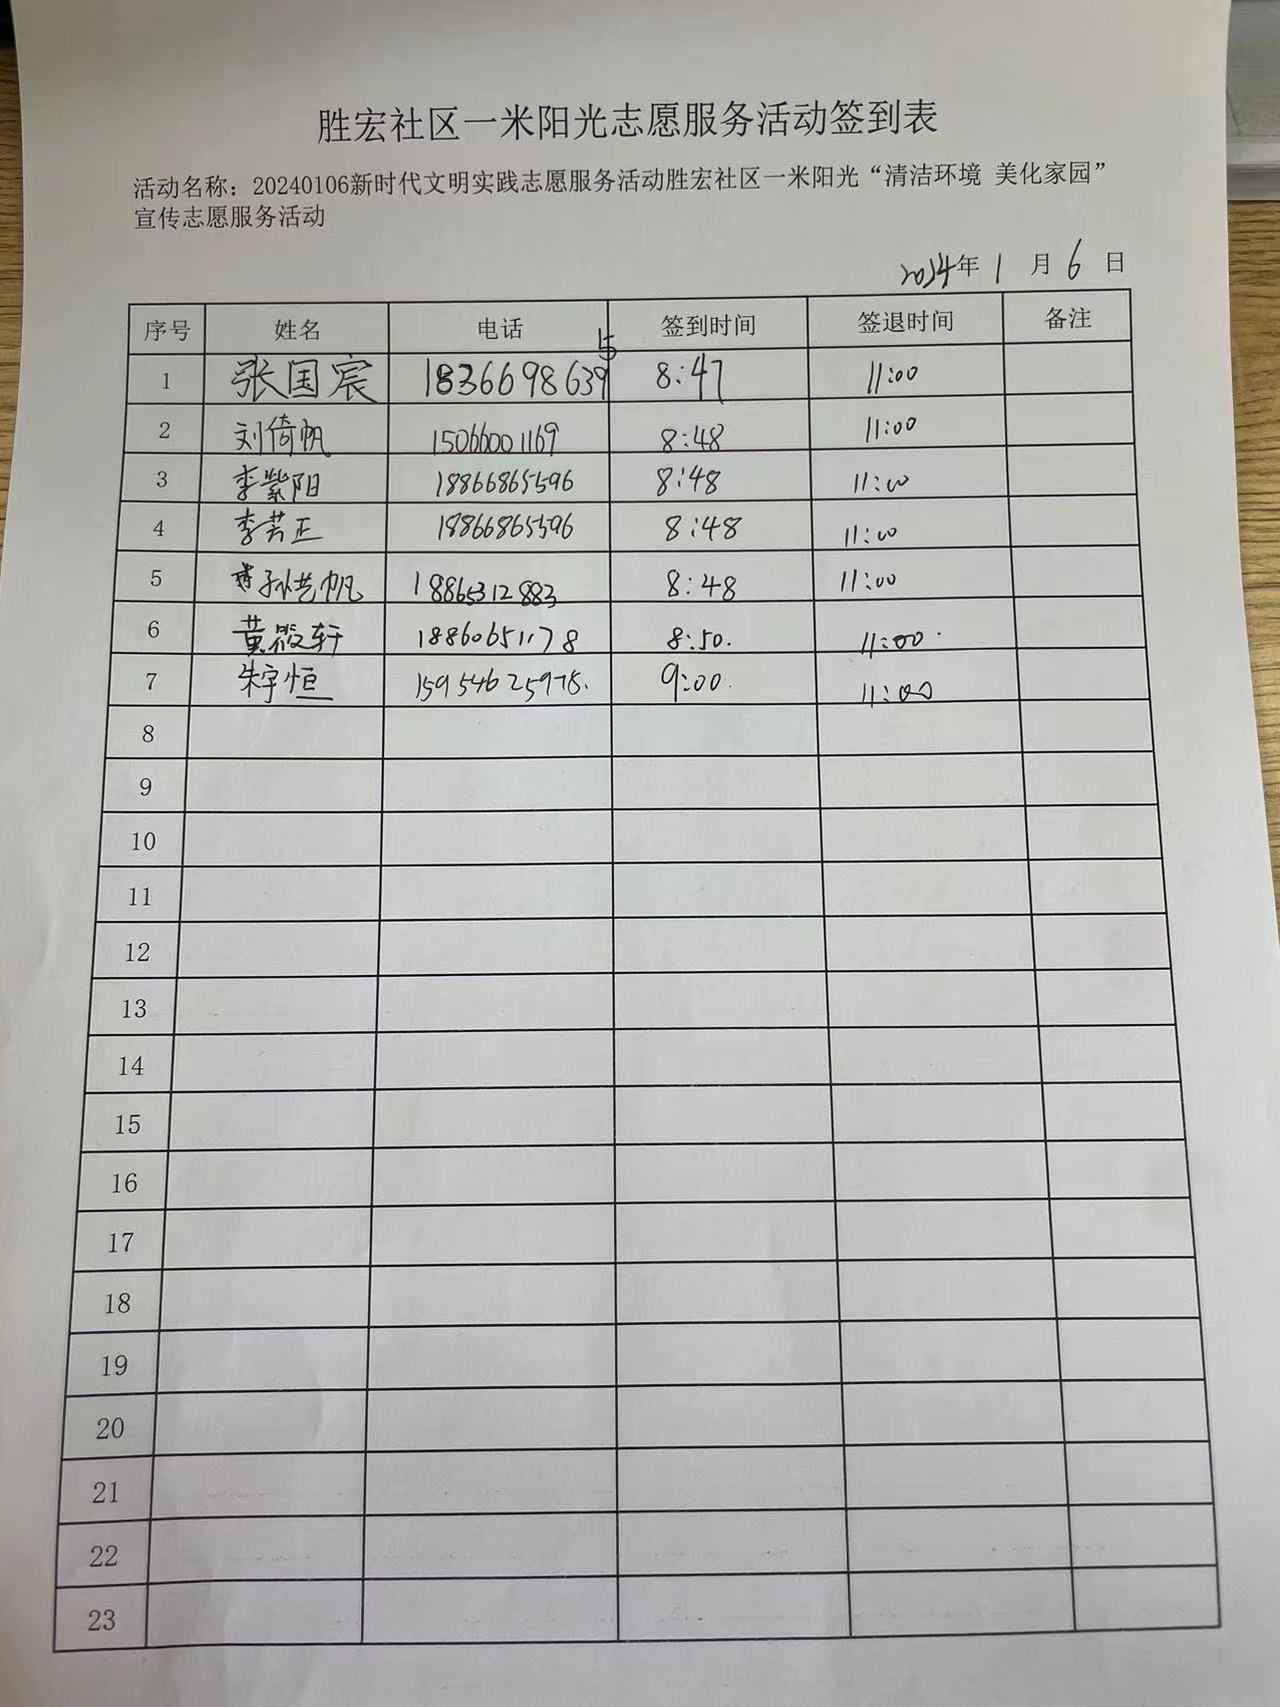 胜宏社区一米阳光志愿服务活动签到表
活动名称：20240106新时代文明实践志愿服务活动胜宏社区一米阳光“清洁环境 美化家园”
宣传志愿服务活动
2024年 1 月 6 日
序号 姓名 电话 签到时间 签退时间 备注
5
1 张国宸 1836698639 8:47 11:00
2 刘倚帆 15066001169 8:48 11:00
3 李紫阳 18866865596 8:48 11:00
4 李芸正 18866865596 8:48 11:00
5 孙艺帆 18865312883 8:48 11:00
6 黄筱轩 18860651178 8:50. 11:00.
7 朱宇恒 15954625978. 9:00. 11:00
8
9
10
11
12
13
14
15
16
17
18
19
20
21
22
23